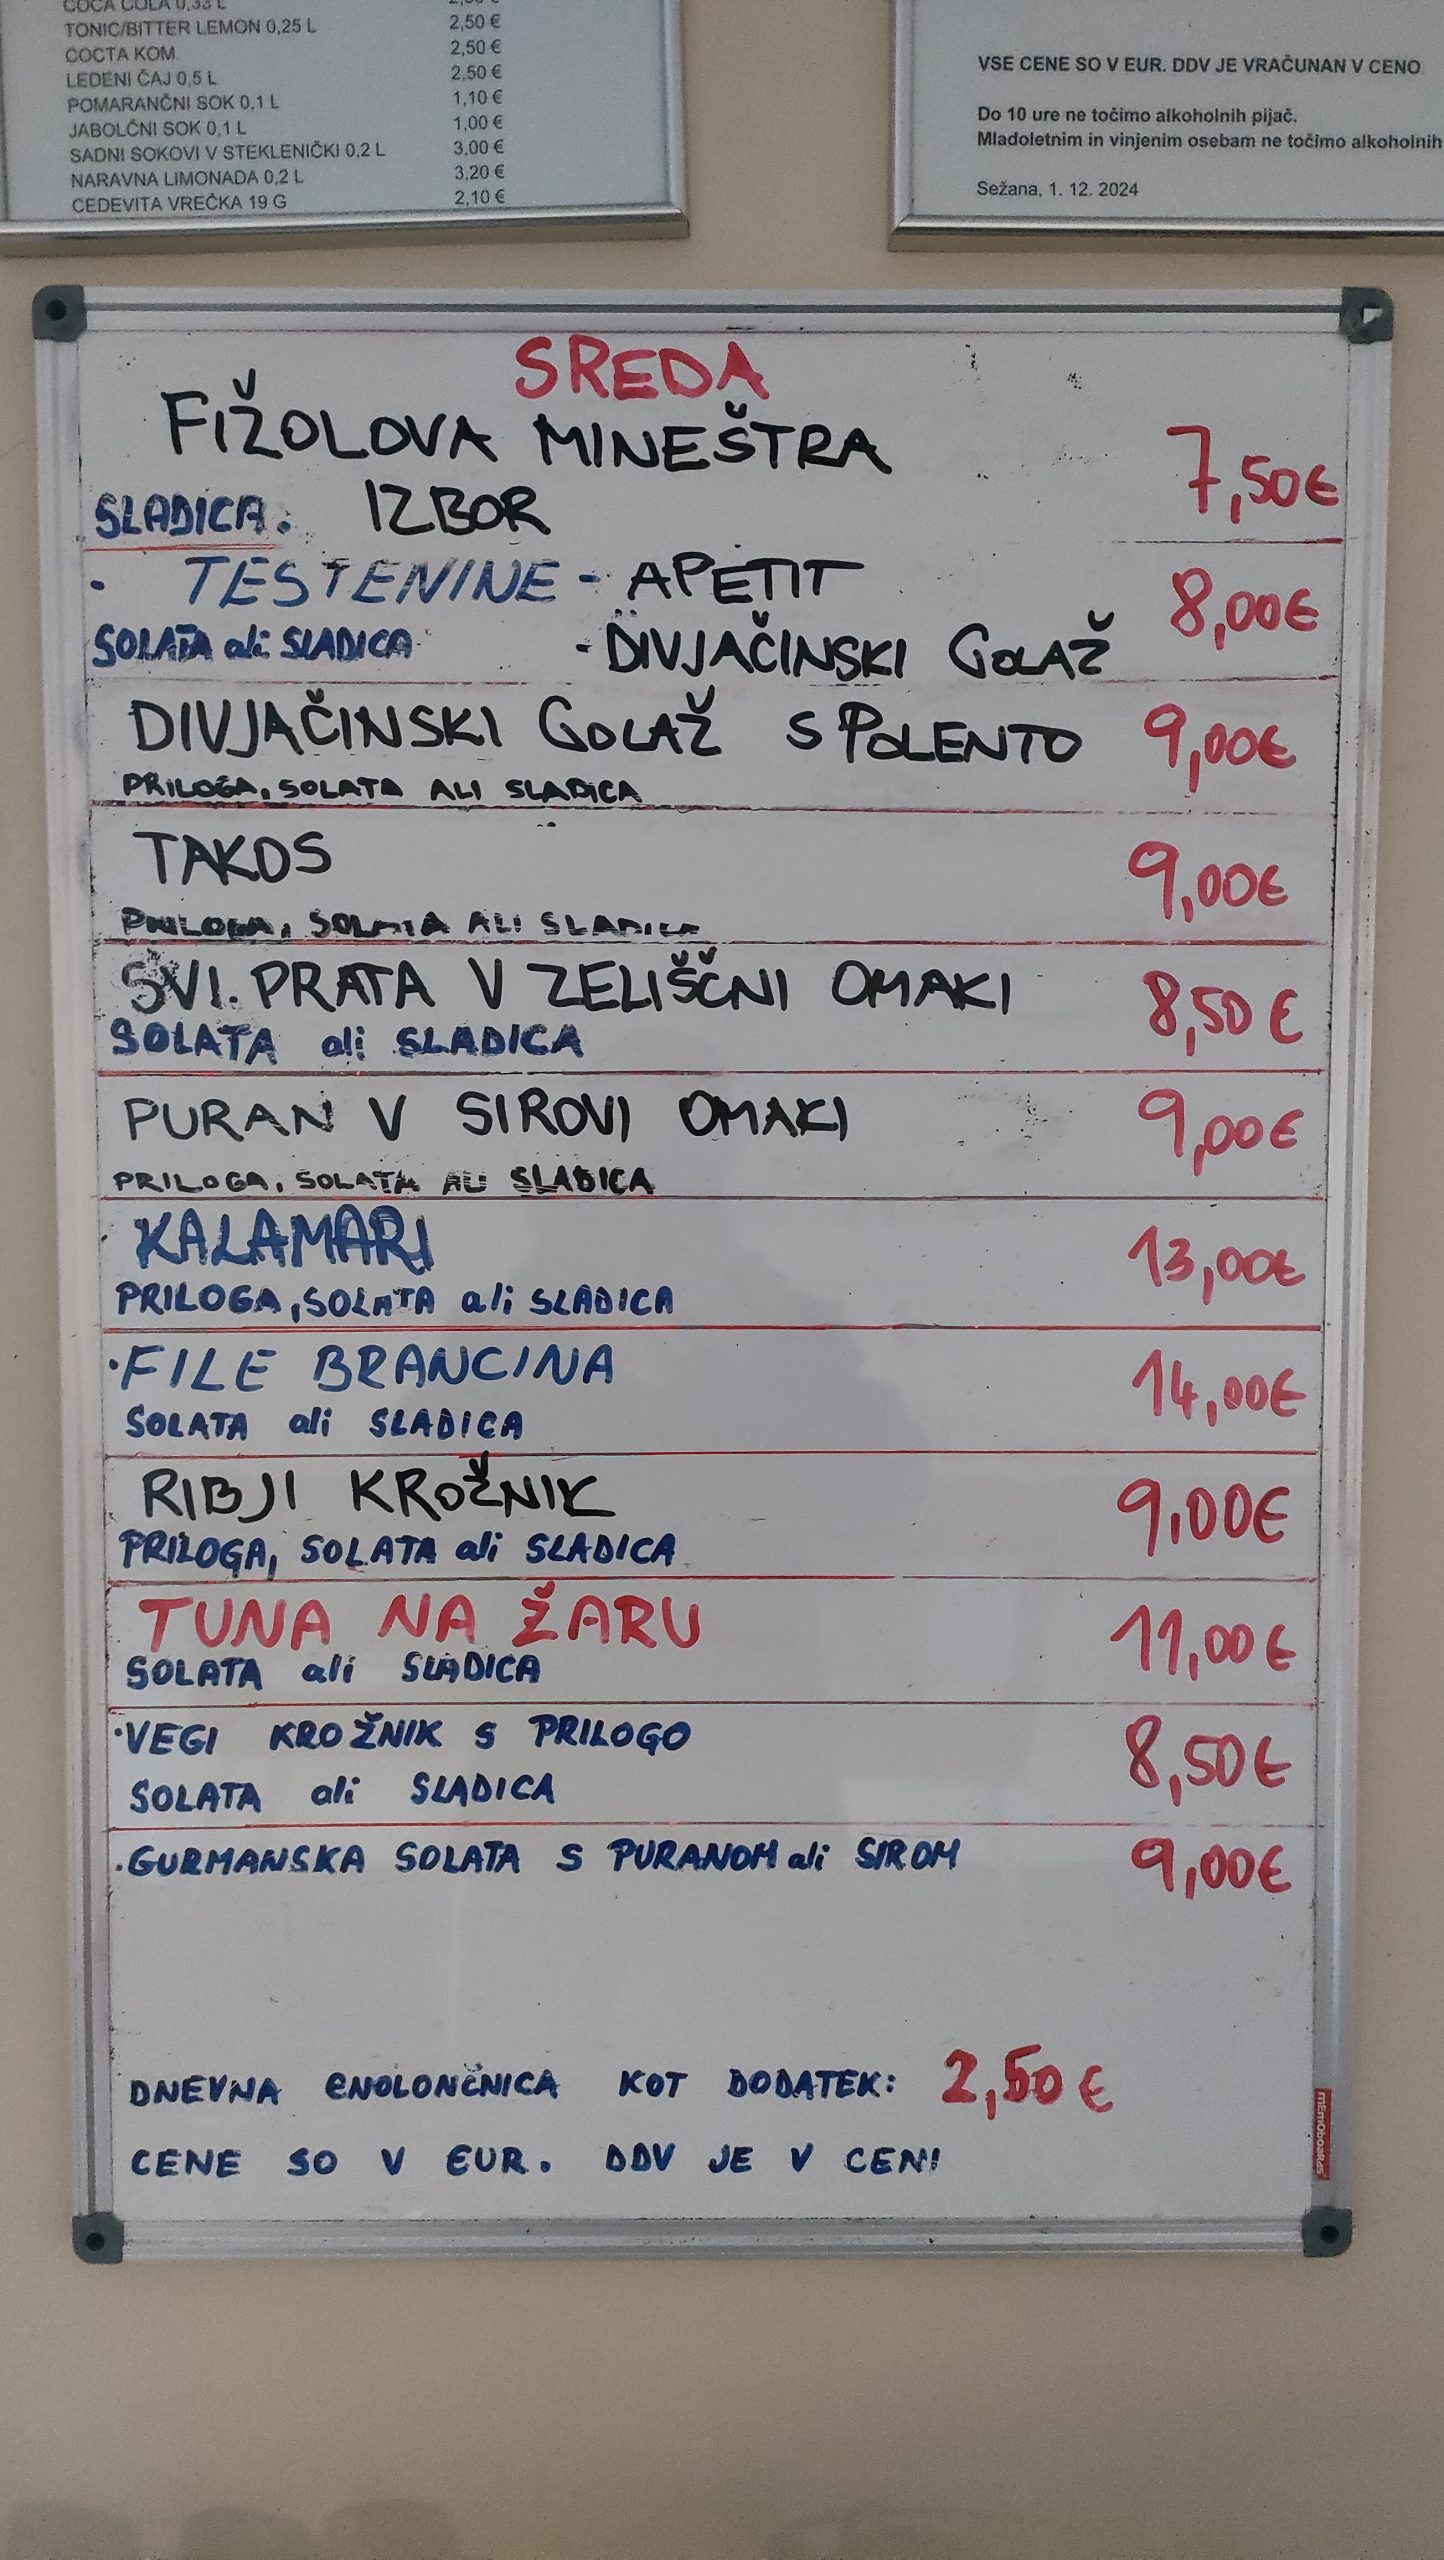 TONIC/BITTER LEMON 0,25 L 2,50 €
COCTA KOM 2,50 €
LEDENI ČAJ 0,5 L 2,50 €
POMARANČNI SOK 0,1 L 1,10 €
JABOLČNI SOK 0,1 L 1,00 €
SADNI SOKOVI V STEKLENIČKI 0,2 L 3,00 €
NARAVNA LIMONADA 0,2 L 3,20 €
CEDEVITA VREČKA 19 G 2,10 €
VSE CENE SO V EUR. DDV JE VRAČUNAN V CENO
Do 10 ure ne točimo alkoholnih pijač.
Mladoletnim in vinjenim osebam ne točimo alkoholnih
Sežana, 1. 12. 2024
SREDA
FIŽOLOVA MINEŠTRA 7,50€
SLADICA. IZBOR
· TESTENINE - APETIT 8,00€
SOLATA ali SLADICA - DIVJAČINSKI GOLAŽ
DIVJAČINSKI GOLAŽ S POLENTO 9,00€
PRILOGA, SOLATA ALI SLADICA
TAKOS 9,00€
PRILOGA, SOLATA ALI SLADICA
SVI. PRATA V ZELIŠČNI OMAKI 8,50€
SOLATA ali SLADICA
PURAN V SIROVI OMAKI 9,00€
PRILOGA, SOLATA ALI SLADICA
KALAMARI 13,00€
PRILOGA, SOLATA ali SLADICA
· FILE BRANCINA 14,00€
SOLATA ali SLADICA
RIBJI KROŽNIK 9,00€
PRILOGA, SOLATA ali SLADICA
TUNA NA ŽARU 11,00€
SOLATA ali SLADICA
· VEGI KROŽNIK S PRILOGO 8,50€
SOLATA ali SLADICA
· GURMANSKA SOLATA S PURANOM ali SIROM 9,00€
DNEVNA ENOLONČNICA KOT DODATEK: 2,50€
CENE SO V EUR. DDV JE V CENI
memoboards